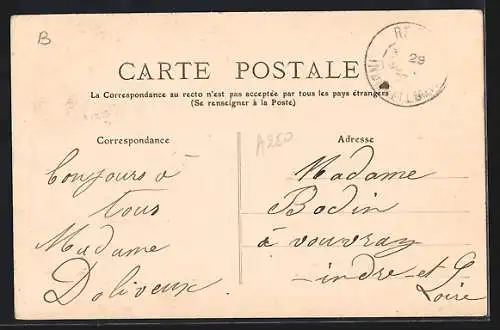 B
CARTE POSTALE
La Correspondance au recto n'est pas acceptée par tous les pays étrangers
(Se renseigner à la Poste)
Correspondance
Bonjours à
tous
Madame
Doliveux
A250
Adresse
Madame
Bodin
à vouvray
indre-et
Loire
29